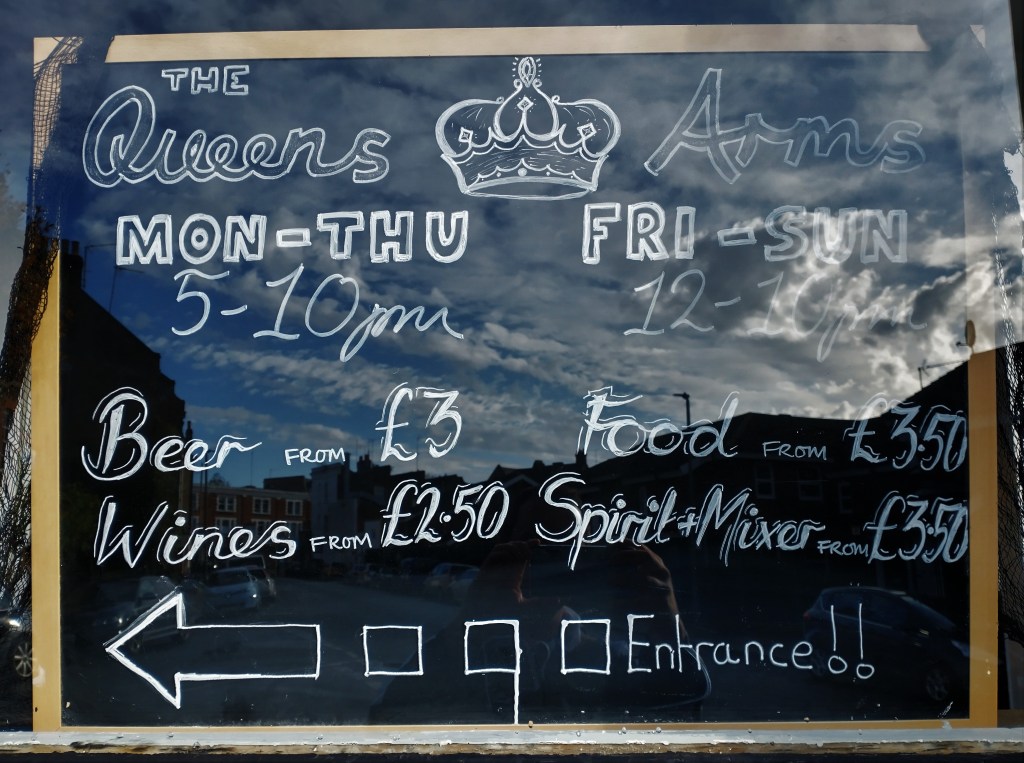 THE
Queens Arms
MON-THU FRI-SUN
5-10pm 12-10pm
Beer FROM £3 Food FROM £3.50
Wines FROM £2.50 Spirit+Mixer FROM £3.50
Entrance!!